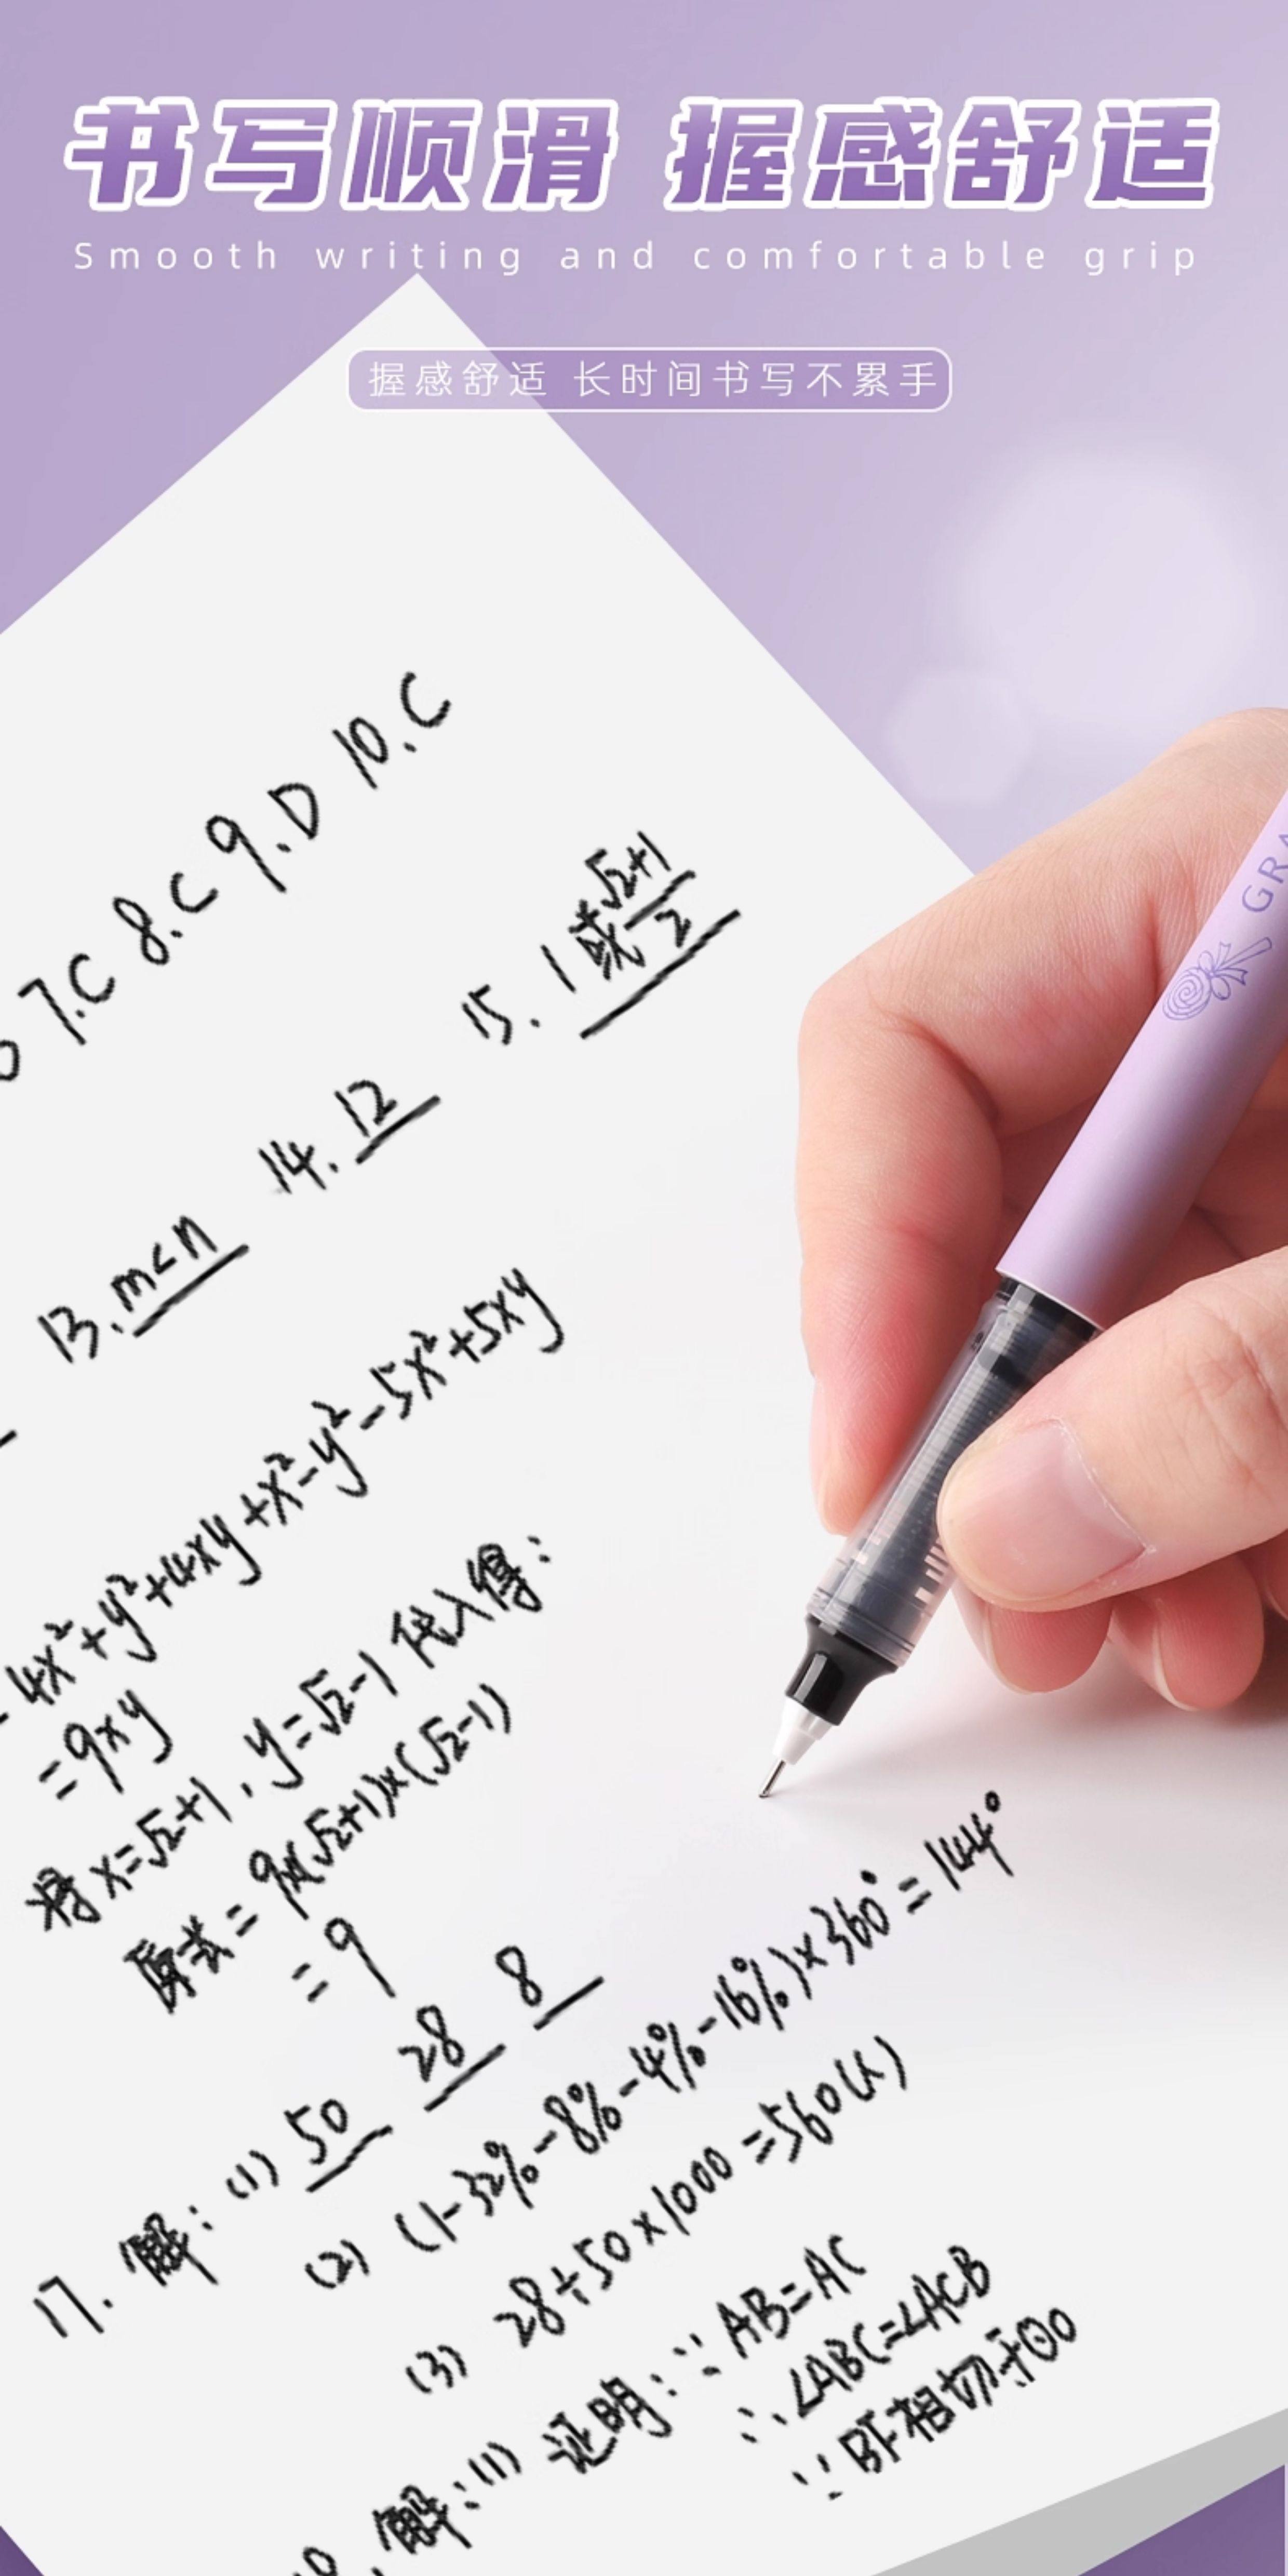 书写顺滑 握感舒适
Smooth writing and comfortable grip
握感舒适 长时间书写不累手
7.C 8.C 9.D 10.C
13. m<n 14. 12 15. 1或(√2+1)/2
4x²+y²+4xy+x²-y²-5x²+5xy
=9xy
将x=√2+1,y=√2-1代入得:
原式=9×(√2+1)×(√2-1)
=9
17. 解:(1) 50 28 8
(2) (1-32%-8%-4%-16%)×360°=144°
(3) 28÷50×1000=560(人)
解:(1) 证明:∵AB=AC
∴∠ABC=∠ACB
∵BF相切于⊙O
GRA